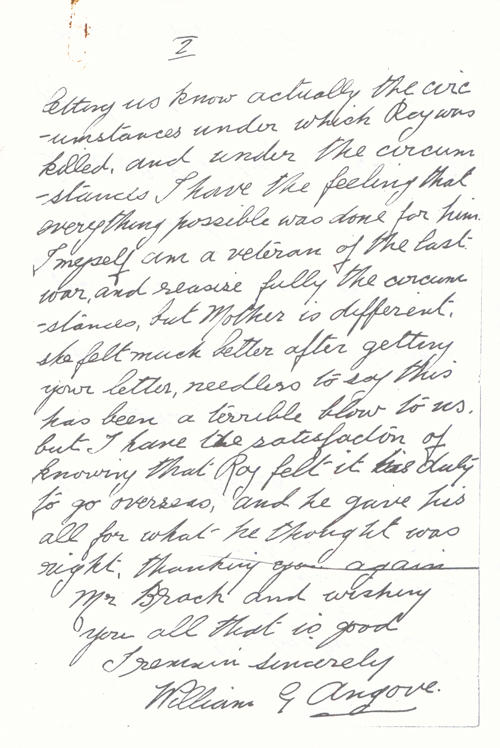 2
letting us know actually the circ
-umstances under which Roy was
killed, and under the circum
-stances I have the feeling that
everything possible was done for him.
I myself am a veteran of the last
war, and reasize fully the circum
-stances, but Mother is different.
she felt much better after getting
your letter, needless to say this
has been a terrible blow to us.
but I have the satisfacton of
knowing that Roy felt it his duty
to go overseas, and he gave his
all for what he thought was
right. thanking you again
Mr Brach and wishing
you all that is good
I remain sincerely
William G Angove.